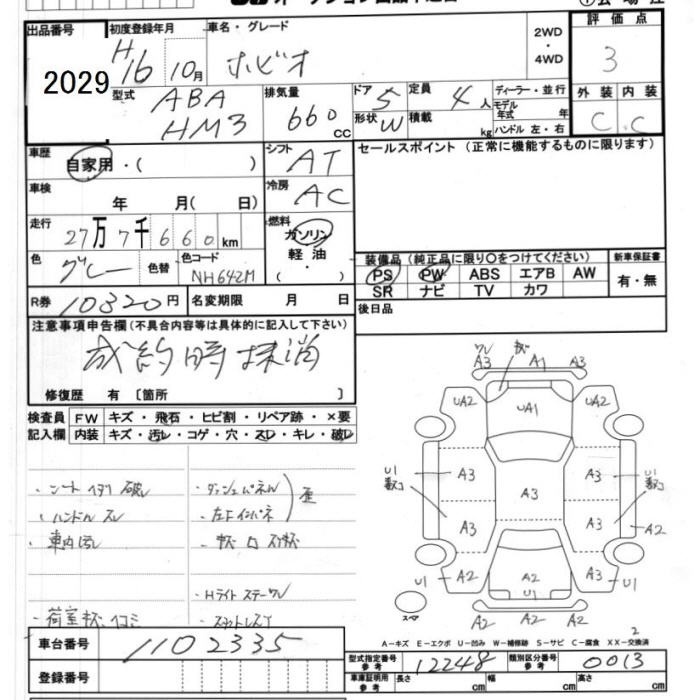 出品番号
2029
初度登録年月
H16 10月
車名・グレード
ホビオ
2WD
・
4WD
評価点
3
型式
ABA
HM3
排気量
660cc
ドア 5
定員 4人
形状 W
積載 kg
ディーラー・並行
モデル年式 年
ハンドル 左・右
外装 内装
C C
車歴
自家用・( )
シフト
AT
セールスポイント (正常に機能するものに限ります)
車検
年 月( 日)
冷房
AC
走行
27万7千660km
燃料
ガソリン
軽油
・( )
色
グレー
色替
色コード
NH642M
装備品 (純正品に限り○をつけてください)
PS PW ABS エアB AW
SR ナビ TV カワ
新車保証書
有・無
R券 10320円
名変期限 月 日
後日品
注意事項申告欄(不具合内容等は具体的に記入して下さい)
成約時抹消
修復歴 有 〔箇所 〕
検査員 FW キズ・飛石・ヒビ割・リペア跡・×要
記入欄 内装 キズ・汚レ・コゲ・穴・スレ・キレ・破レ
・シートイタミ破レ
・ダッシュパネル
・ハンドルスレ
・車内汚レ
A3 A1 A3
UA2 UA1 UA2
U1 A3 A3 A3 U1
A3 A3 A2
U1 A2 A2 U1 A3 U1
A2 A2 A2
スペア
A－キズ E－エクボ U－凹み W－補修跡 S－サビ C－腐食 XX－交換済
車台番号 1102335
登録番号
型式指定番号 参考 12248
類別区分番号 参考 0013
車庫証明用 参考 長さ cm 幅 cm 高さ cm